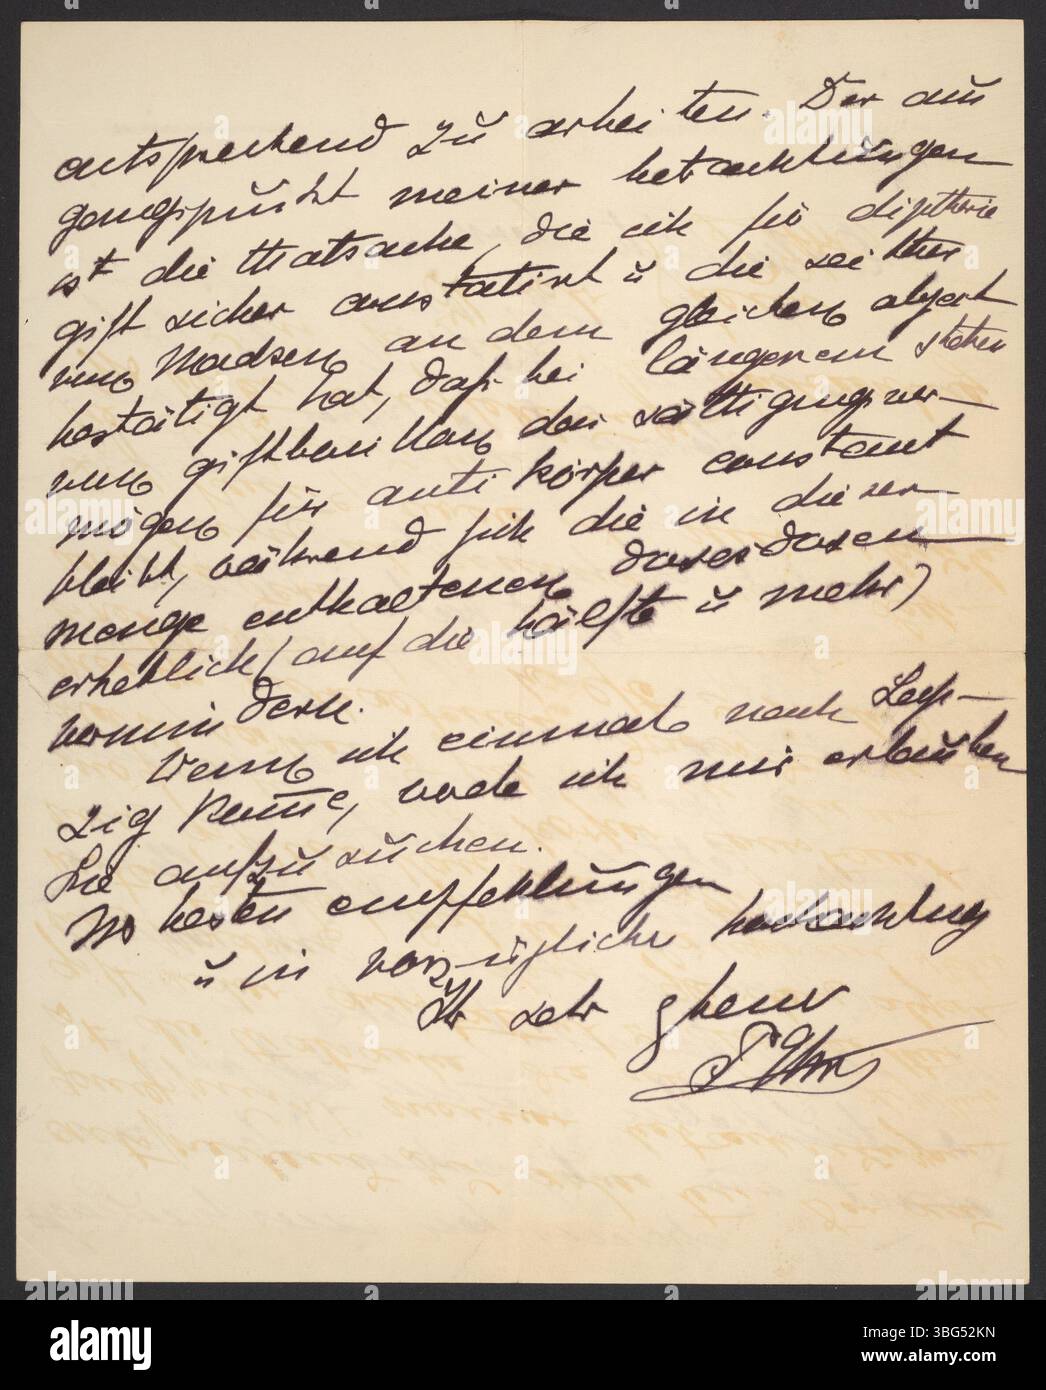 entsprechend zu arbeiten. Der aus
gangspunkt meiner betrachtungen
ist die thatsache, die ich für diphtherie
gift sicher constatirt u die seither
von Madsen an dem gleichen object
bestätigt hat, daß bei längerem stehen
von giftbouillon das sättigungsver-
mögen für antikörper constant
bleibt, während sich die in dieser
menge enthaltenen dosen
erheblich (auf die hälfte u mehr)
vermindern.
Wenn ich einmal nach Leip-
zig komme, werde ich mir erlauben
Sie aufzusuchen.
Mit besten empfehlungen
u in vorzüglicher hochachtung
Ihr sehr ergebener
P Ehrlich
alamy
3BG52KN
Image ID: 3BG52KN
www.alamy.com